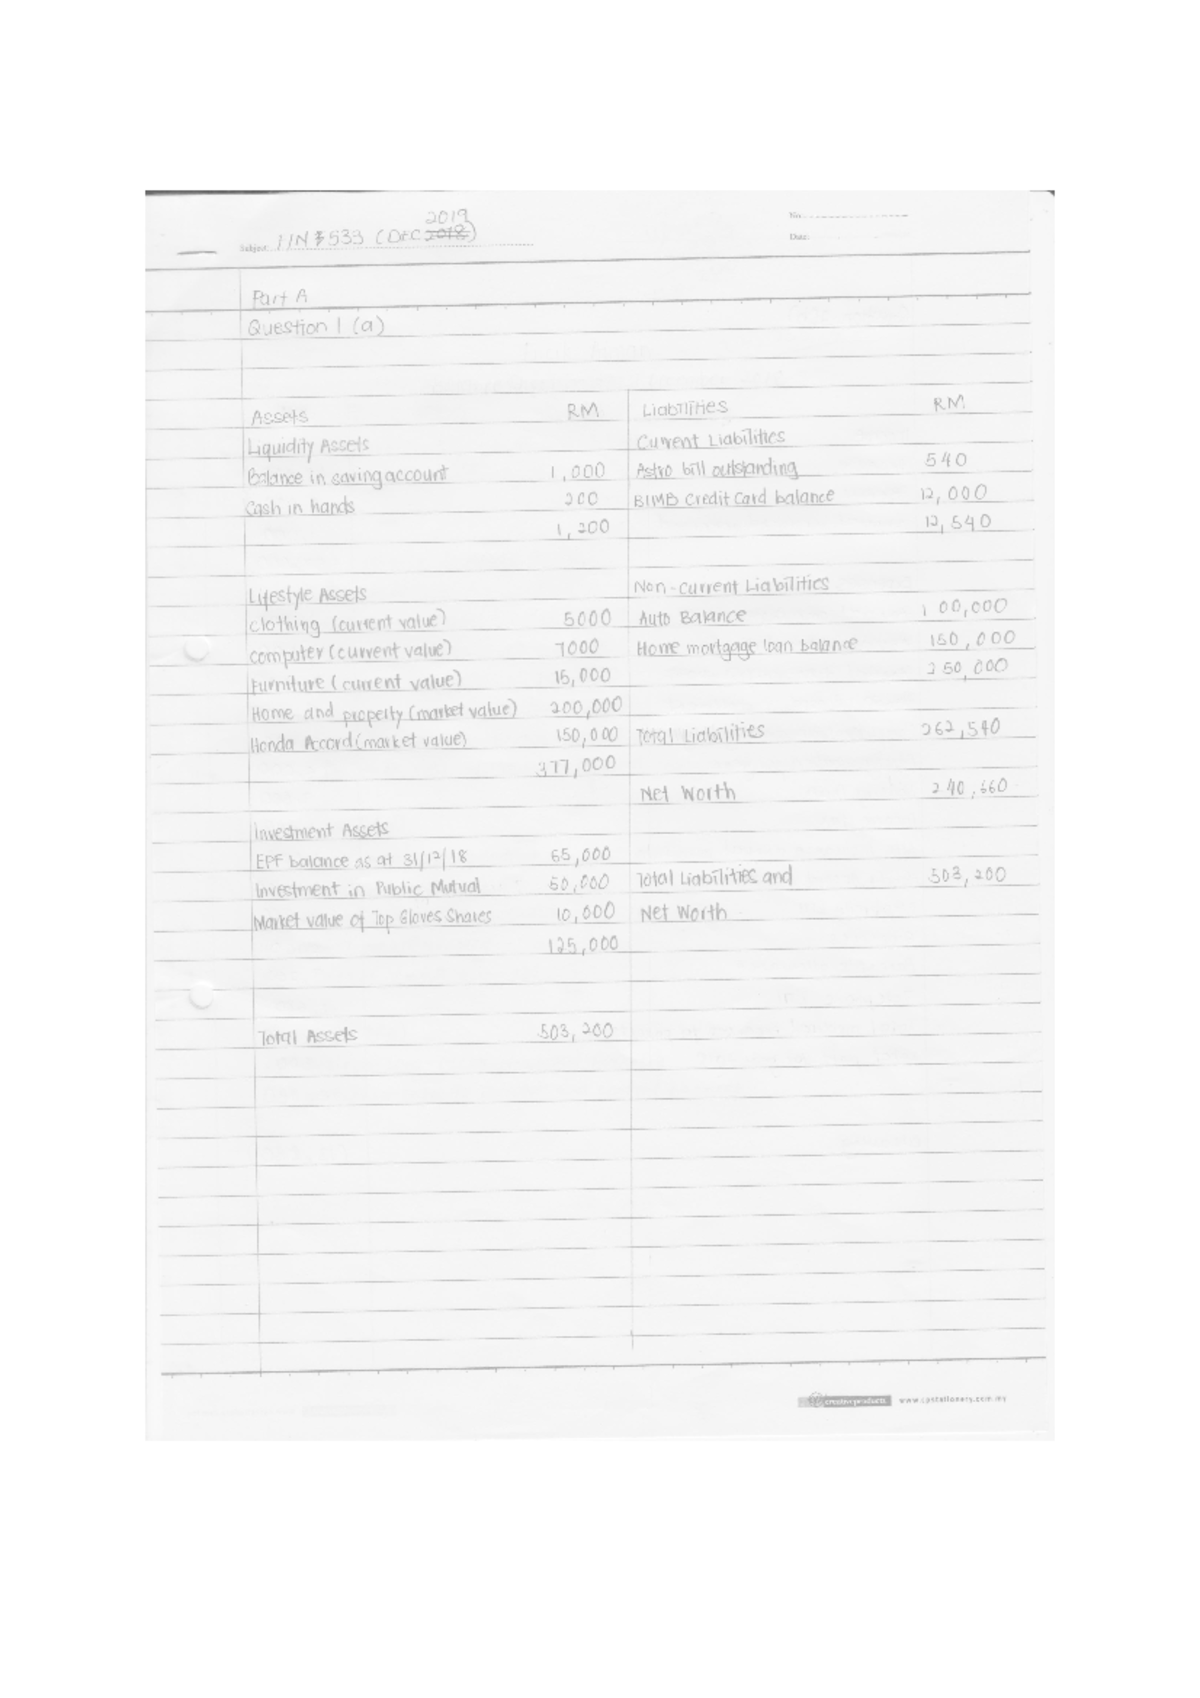 2019
No:
Subject: FIN 533 (DEC 2018)
Date:
Part A
Question 1 (a)
Assets RM Liabilities RM
Liquidity Assets Current Liabilities
Balance in saving account 1,000 Astro bill outstanding 540
Cash in hands 200 BIMB Credit Card balance 12,000
1,200 12,540
Lifestyle Assets Non-current Liabilities
Clothing (current value) 5000 Auto Balance 100,000
computer (current value) 7000 Home mortgage loan balance 150,000
Furniture (current value) 15,000 250,000
Home and property (market value) 200,000
Honda Accord (market value) 150,000 Total Liabilities 262,540
377,000
Net Worth 240,660
Investment Assets
EPF balance as at 31/12/18 65,000
Investment in Public Mutual 50,000 Total Liabilities and 503,200
Market value of Top Gloves Shares 10,000 Net Worth
125,000
Total Assets 503,200
www.cpstationery.com.my